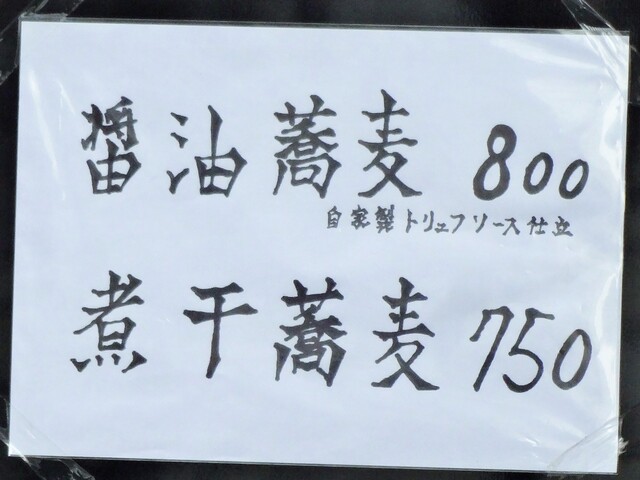 醤油蕎麦 800
自家製トリュフソース仕立
煮干蕎麦 750